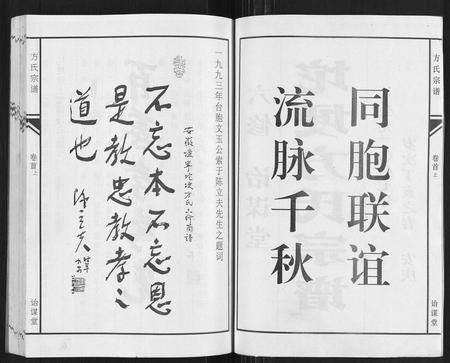 方氏宗谱
卷首上
诒谋堂
同胞联谊
流脉千秋
方氏宗谱
卷首上
诒谋堂
一九九三年台胞文玉公索于陈立夫先生之题词
不忘本不忘恩
是教忠教孝之
道也
陈立夫